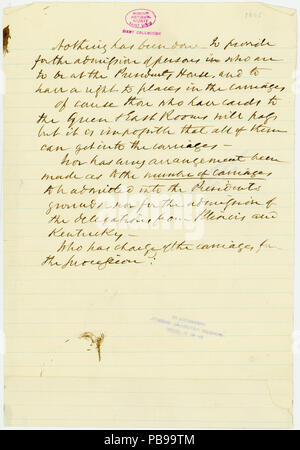 1865
MISSOURI
HISTORICAL
SOCIETY
Nothing has been done to provide
for the admission of persons who are
to be at the Presidents House, and to
have a right to places in the carriages
of course those who have cards to
the Green & East Rooms will pass,
but it is impossible that all of them
can get into the carriages —
Nor has any arrangement been
made as to the number of carriages
to be admitted into the Presidents
grounds nor for the admission of
the delegations from Illinois and
Kentucky —
Who has charge of the carriages for
the procession?
alamy
PB99TM